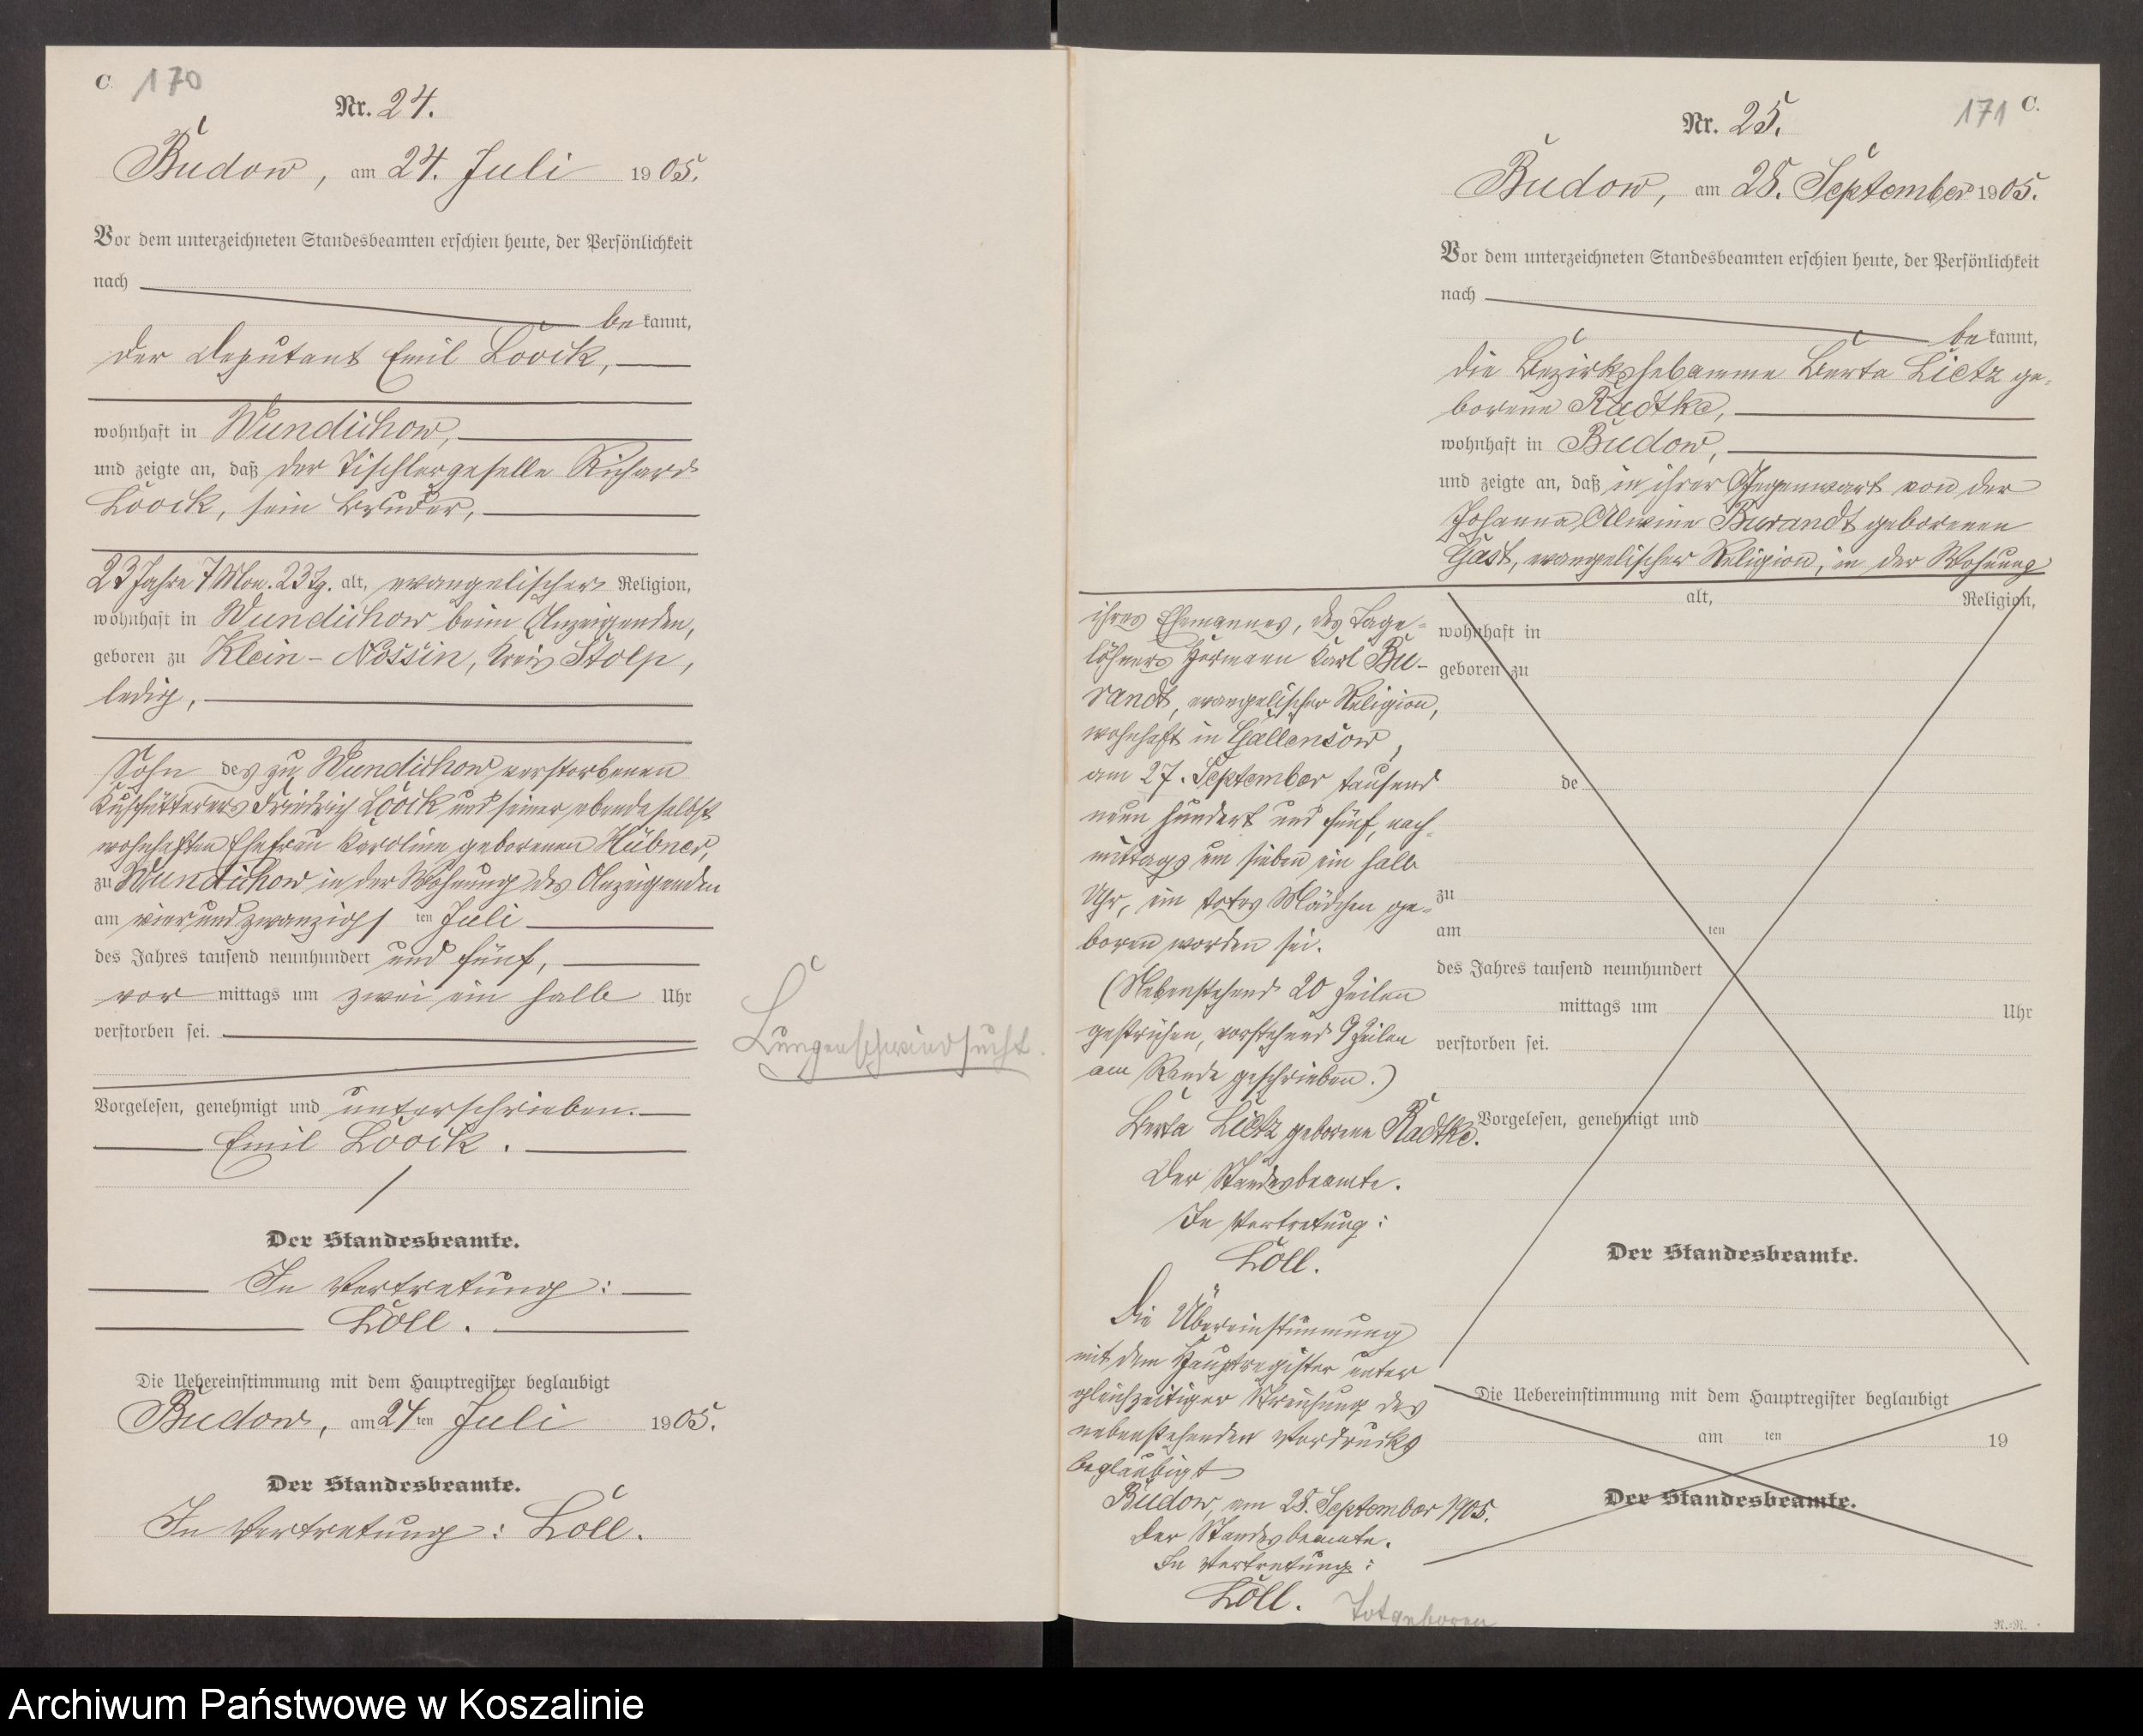 C. 170
Nr. 24.
Budow, am 24. Juli 1905.
Vor dem unterzeichneten Standesbeamten erschien heute, der Persönlichkeit
nach
bekannt,
der Deputant Emil Loock,
wohnhaft in Wundichow,
und zeigte an, daß der Tischlergeselle Richard
Loock, sein Bruder,
23 Jahre 7 Mon. 23 Tg. alt, evangelischer Religion,
wohnhaft in Wundichow beim Anzeigenden,
geboren zu Klein-Nossin, Kreis Stolp,
ledig,
Sohn des zu Wundichow verstorbenen
Kuhfütterers Friedrich Loock und seiner ebendaselbst
wohnhaften Ehefrau Karoline geborenen Hübner,
zu Wundichow in der Wohnung des Anzeigenden
am vierundzwanzigsten Juli
des Jahres tausend neunhundert und fünf,
vor mittags um zwei ein halb Uhr
verstorben sei.
Lungenschwindsucht.
Vorgelesen, genehmigt und unterschrieben.
Emil Loock.
Der Standesbeamte.
In Vertretung:
Löll.
Die Uebereinstimmung mit dem Hauptregister beglaubigt
Budow, am 24ten Juli 1905.
Der Standesbeamte.
In Vertretung: Löll.
171 C.
Nr. 25.
Budow, am 28. September 1905.
Vor dem unterzeichneten Standesbeamten erschien heute, der Persönlichkeit
nach
bekannt,
die Bezirkshebamme Berta Lietz ge-
borene Radtke,
wohnhaft in Budow,
und zeigte an, daß in ihrer Gegenwart von der
Johanna Alwine Burandt geborenen
Gast, evangelischer Religion, in der Wohnung
ihres Ehemannes, des Tage-
löhners Hermann Karl Bu-
randt, evangelischer Religion,
wohnhaft in Gallensow,
am 27. September tausend
neun hundert und fünf, nach-
mittags um sieben ein halb
Uhr, ein totes Mädchen ge-
boren worden sei.
(Nebenstehend 20 Zeilen
gestrichen, vorstehend 9 Zeilen
am Rande geschrieben.)
Berta Lietz geborene Radtke.
Der Standesbeamte.
In Vertretung:
Löll.
Die Übereinstimmung
mit dem Hauptregister unter
gleichzeitiger Streichung des
nebenstehenden Vordrucks
beglaubigt
Budow, am 28. September 1905.
Der Standesbeamte.
In Vertretung:
Löll.
Totgeboren
alt, Religion,
wohnhaft in
geboren zu
de
zu
am ten
des Jahres tausend neunhundert
mittags um Uhr
verstorben sei.
Vorgelesen, genehmigt und
Der Standesbeamte.
Die Uebereinstimmung mit dem Hauptregister beglaubigt
am ten 19
Der Standesbeamte.
Archiwum Państwowe w Koszalinie